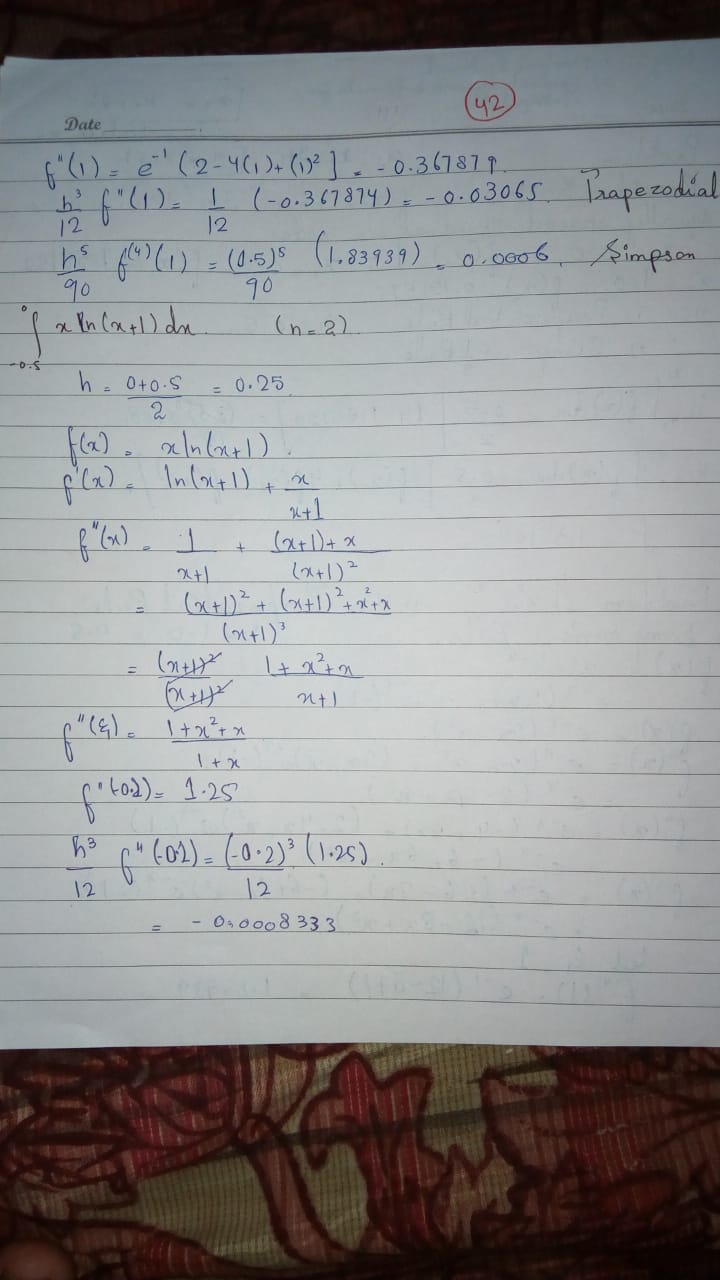 42
Date
f"(1) = e⁻¹ (2-4(1)+(1)² ] = -0.367879.
h³/12 f"(1) = 1/12 (-0.367874) = -0.03065. Trapezodial
h⁵/90 f⁽⁴⁾(1) = (0.5)⁵/90 (1.83939) = 0.0006. Simpson
∫₋₀.₅⁰ x ln(x+1) dx. (n=2)
h = 0+0.5/2 = 0.25
f(x) = x ln(x+1).
f'(x) = ln(x+1) + x/x+1
f"(x) = 1/x+1 + (x+1)+x/(x+1)²
= (x+1)² + (x+1)² + x² + x/(x+1)³
= (x+1)²/(x+1)² 1+x²+x/x+1
f"(ξ) = 1+x²+x/1+x
f"(-0.2) = 1.25
h³/12 f"(-0.2) = (-0.2)³/12 (1.25).
= -0.0008333